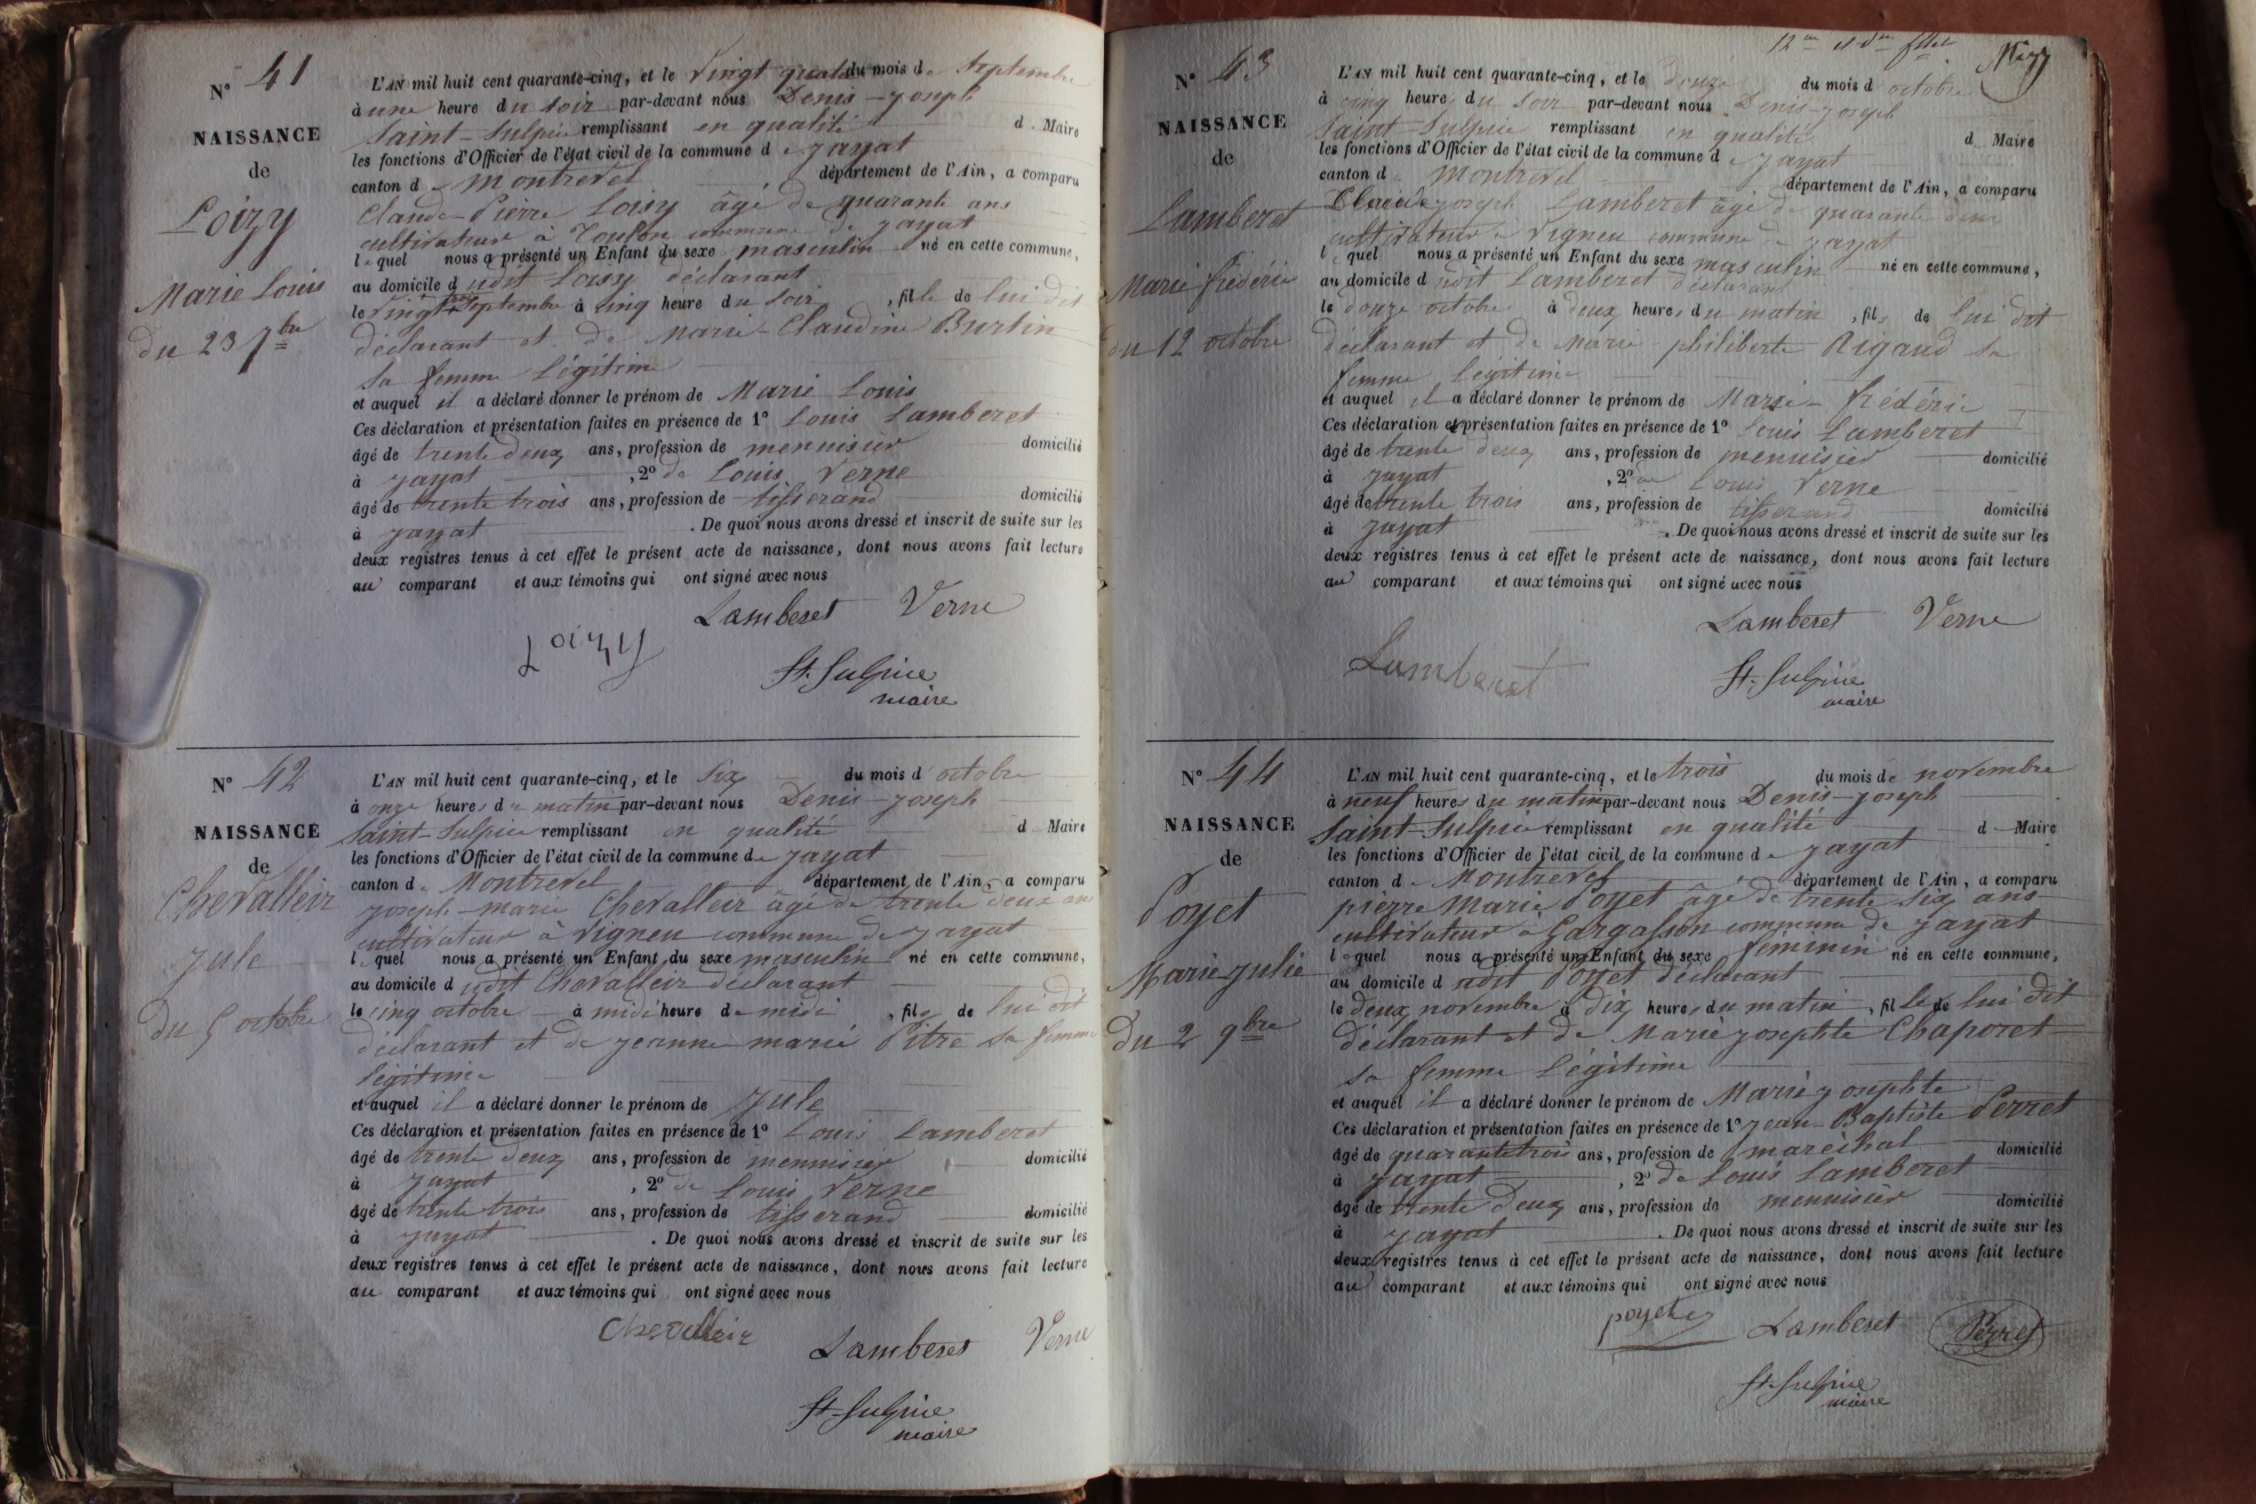 N° 41
NAISSANCE
de
Loizy
Marie Louis
du 23 7bre
L'AN mil huit cent quarante-cinq, et le vingt quatre du mois de Septembre
à une heure du soir par-devant nous Denis-joseph
Saint-Sulpice remplissant en qualité de Maire
les fonctions d'Officier de l'état civil de la commune de jayat
canton de Montrevel département de l'Ain, a comparu
Claude-Pierre Loisy âgé de quarante ans
cultivateur à Toulon commune de jayat
lequel nous a présenté un Enfant du sexe masculin né en cette commune,
au domicile dudit Loisy déclarant
le vingt trois Septembre à cinq heure du soir, fils de lui dit
déclarant et de Marie-Claudine Burtin
sa femme légitime
et auquel il a déclaré donner le prénom de Marie Louis
Ces déclaration et présentation faites en présence de 1° Louis Lamberet
âgé de trente deux ans, profession de menuisier domicilié
à jayat, 2° de Louis Verne
âgé de trente trois ans, profession de tisserand domicilié
à jayat. De quoi nous avons dressé et inscrit de suite sur les
deux registres tenus à cet effet le présent acte de naissance, dont nous avons fait lecture
au comparant et aux témoins qui ont signé avec nous
Lamberet Verne
Loizy
St. Sulpice
maire
N° 42
NAISSANCE
de
Chevalleir
Jule
du 5 octobre
L'AN mil huit cent quarante-cinq, et le six du mois d'octobre
à onze heures du matin par-devant nous Denis-joseph
Saint-Sulpice remplissant en qualité de Maire
les fonctions d'Officier de l'état civil de la commune de jayat
canton de Montrevel département de l'Ain, a comparu
joseph-marie Chevalleir âgé de trente deux ans
cultivateur à Vigneu commune de jayat
lequel nous a présenté un Enfant du sexe masculin né en cette commune,
au domicile dudit Chevalleir déclarant
le cinq octobre à midi heure de midi, fils de lui dit
déclarant et de jeanne marie Pitre sa femme
légitime
et auquel il a déclaré donner le prénom de Jule
Ces déclaration et présentation faites en présence de 1° Louis Lamberet
âgé de trente deux ans, profession de menuisier domicilié
à jayat, 2° de Louis Verne
âgé de trente trois ans, profession de tisserand domicilié
à jayat. De quoi nous avons dressé et inscrit de suite sur les
deux registres tenus à cet effet le présent acte de naissance, dont nous avons fait lecture
au comparant et aux témoins qui ont signé avec nous
Chevalleir Lamberet Verne
St. Sulpice
maire
12me et dr fllet
N° 43
NAISSANCE
de
Lamberet
Marie frédéric
du 12 octobre
L'AN mil huit cent quarante-cinq, et le douze du mois d'octobre
à cinq heures du soir par-devant nous Denis-joseph
Saint-Sulpice remplissant en qualité de Maire
les fonctions d'Officier de l'état civil de la commune de jayat
canton de Montrevel département de l'Ain, a comparu
joseph Lamberet âgé de quarante deux
cultivateur à Vigneu commune de jayat
lequel nous a présenté un Enfant du sexe masculin né en cette commune,
au domicile dudit Lamberet déclarant
le douze octobre à deux heures du matin, fils de lui dit
déclarant et de Marie philiberte Rigaud sa
femme légitime
et auquel il a déclaré donner le prénom de Marie-frédéric
Ces déclaration et présentation faites en présence de 1° Louis Lamberet
âgé de trente deux ans, profession de menuisier domicilié
à jayat, 2° de Louis Verne
âgé de trente trois ans, profession de tisserand domicilié
à jayat. De quoi nous avons dressé et inscrit de suite sur les
deux registres tenus à cet effet le présent acte de naissance, dont nous avons fait lecture
au comparant et aux témoins qui ont signé avec nous
Lamberet Verne
Lamberet
St. Sulpice
maire
N° 44
NAISSANCE
de
Poyet
Marie julie
Du 2 9bre
L'AN mil huit cent quarante-cinq, et le trois du mois de novembre
à neuf heures du matin par-devant nous Denis-joseph
Saint-Sulpice remplissant en qualité de Maire
les fonctions d'Officier de l'état civil de la commune de jayat
canton de Montrevel département de l'Ain, a comparu
pierre Marie Poyet âgé de trente six ans
cultivateur à Gargasson commune de jayat
lequel nous a présenté un Enfant du sexe féminin né en cette commune,
au domicile dudit Poyet déclarant
le deux novembre à dix heures du matin, fille de lui dit
déclarant et de Marie josephte Chaporet
sa femme légitime
et auquel il a déclaré donner le prénom de Marie josephte
Ces déclaration et présentation faites en présence de 1° jean-Baptiste Perret
âgé de quarante trois ans, profession de maréchal domicilié
à jayat, 2° de Louis Lamberet
âgé de trente deux ans, profession de menuisier domicilié
à jayat. De quoi nous avons dressé et inscrit de suite sur les
deux registres tenus à cet effet le présent acte de naissance, dont nous avons fait lecture
au comparant et aux témoins qui ont signé avec nous
poyet Lamberet Perret
St. Sulpice
maire